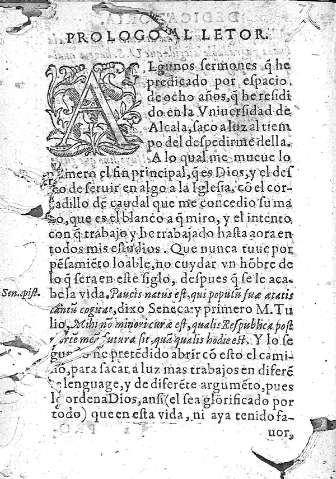 PROLOGO AL LETOR.
ALgunos sermones q̃ he
predicado por espacio
de ocho años, q̃ he residi
do en la Vniuersidad de
Alcala, saco a luz al tiem
po del despedirme della.
A lo qual me mueue lo
primero el fin principal, q̃ es Dios, y el des
seo de seruir en algo a la Iglesia, cõ el cor
nadillo de caudal que me concedio su ma
no, que es el blanco a q̃ miro, y el intento
con q̃ trabajo y he trabajado hasta aora en
todos mis estudios. Que nunca tuue por
pẽsamiẽto loable, no cuydar vn hõbre de
lo q̃ sera en este siglo, despues q̃ se le aca-
Sen. epist. be la vida. Paucis natus est, qui populũ suæ ætatis
cogitat, dixo Seneca: y primero M. Tu
lio, Mihi nõ minori curæ est, qualis Respublica post
mortẽ meã futura sit, quã qualis hodie est. Y lo se
gundo he pretẽdido abrir cõ esto el cami
no, para sacar a luz mas trabajos en diferẽ
te lenguage, y de diferẽte argumẽto, pues
lo ordena Dios, ansi (el sea glorificado por
todo) que en esta vida, ni aya tenido fa-
uor,